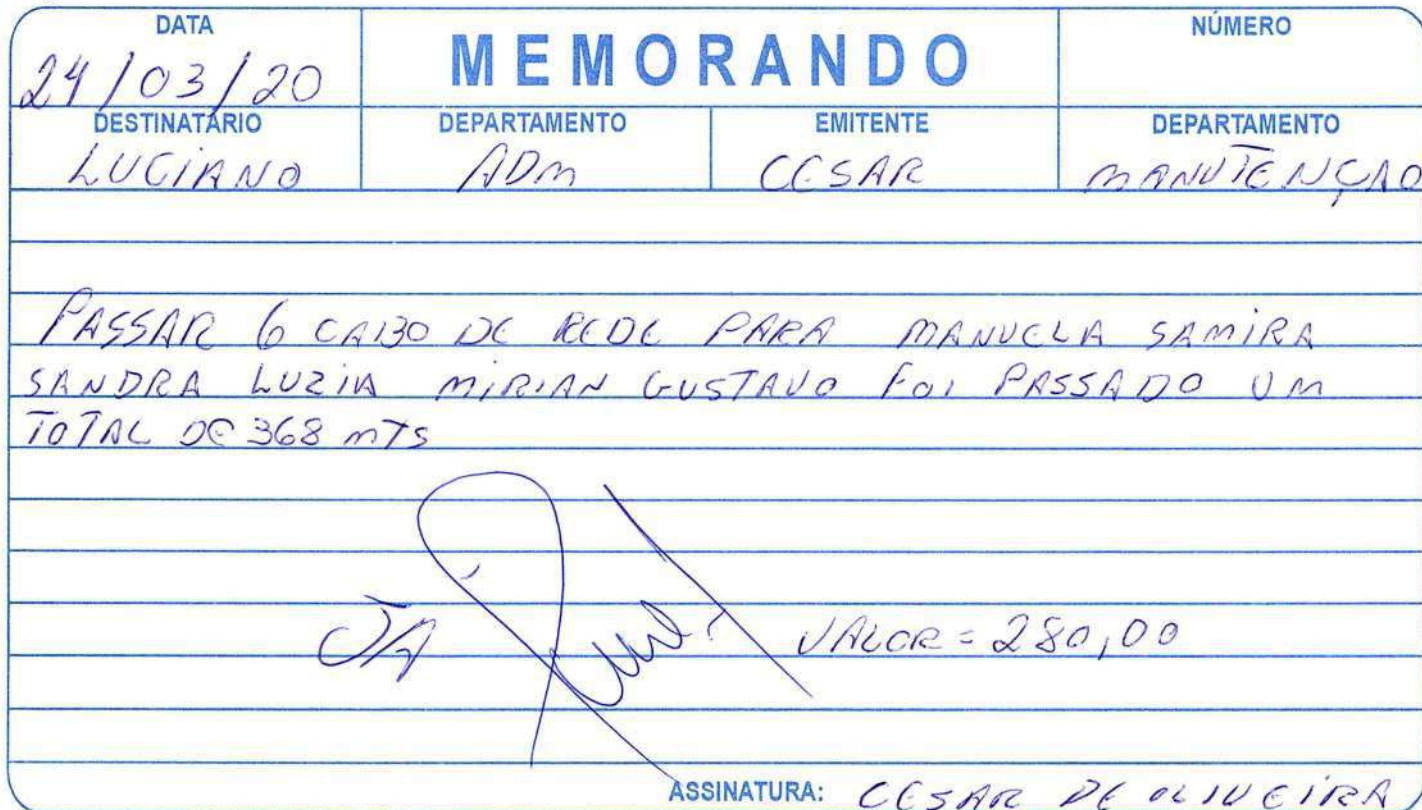 DATA
24/03/20
MEMORANDO
NÚMERO
DESTINATÁRIO
LUCIANO
DEPARTAMENTO
ADM
EMITENTE
CESAR
DEPARTAMENTO
MANUTENÇÃO
PASSAR 6 CABO DE REDE PARA MANUELA SAMIRA
SANDRA LUZIA MIRIAN GUSTAVO FOI PASSADO UM
TOTAL DE 368 MTS
VALOR = 280,00
ASSINATURA: CESAR DE OLIVEIRA